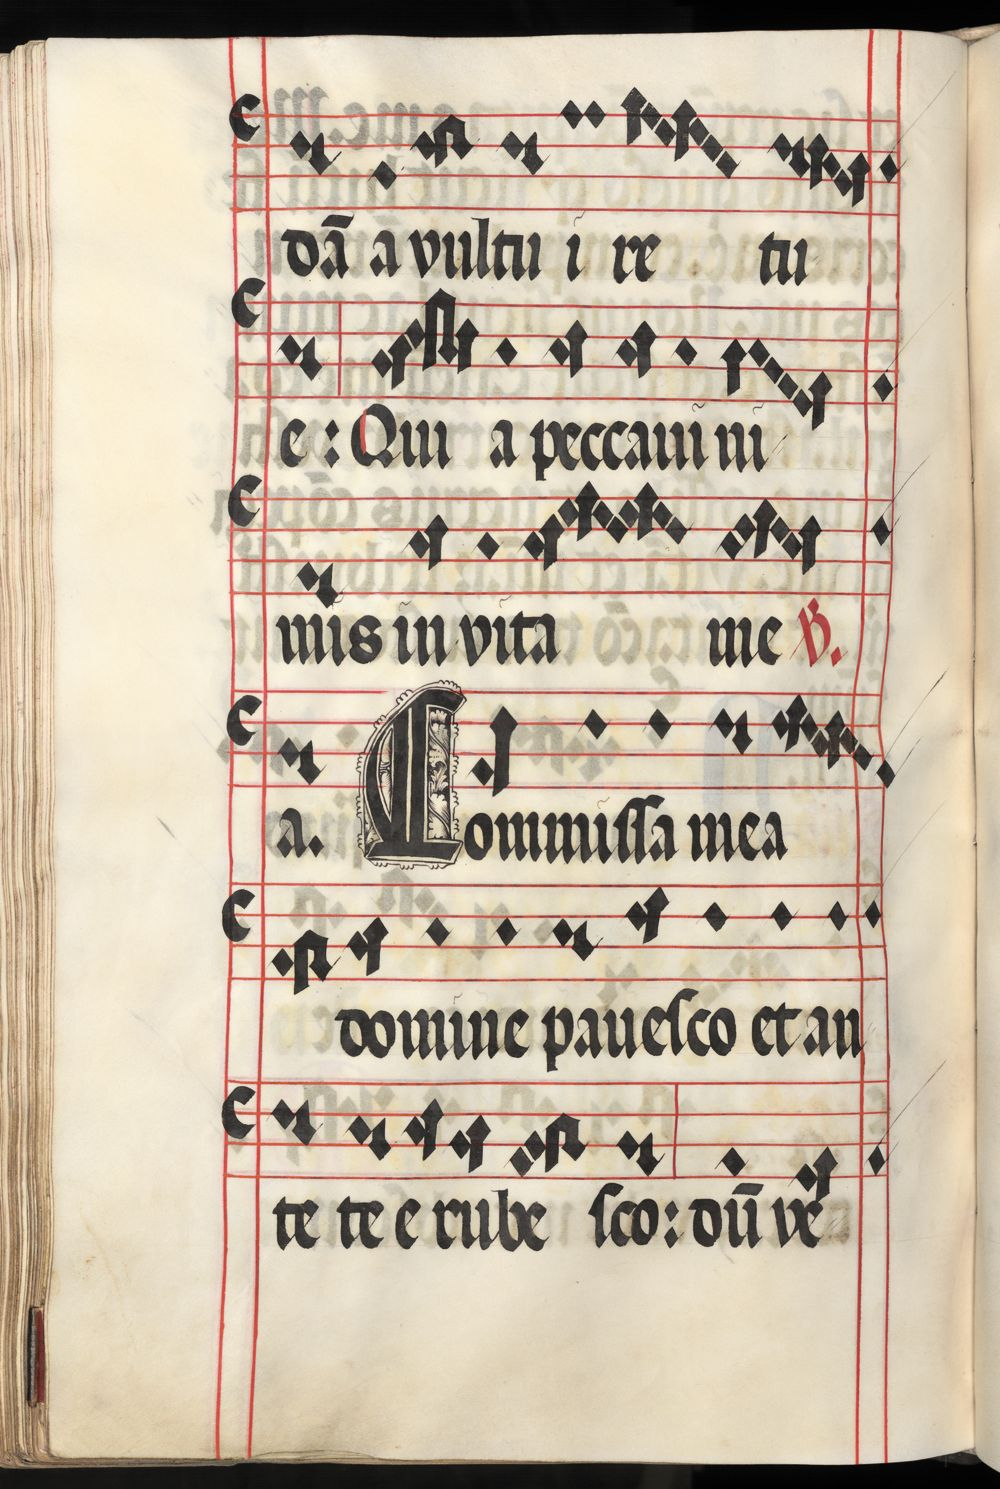 dā a vultu i re tu
e: Qui a peccaui ni
mis in vita me ℣.
a. Commissa mea
domine pauesco et an
te te e rube sco: dū ve